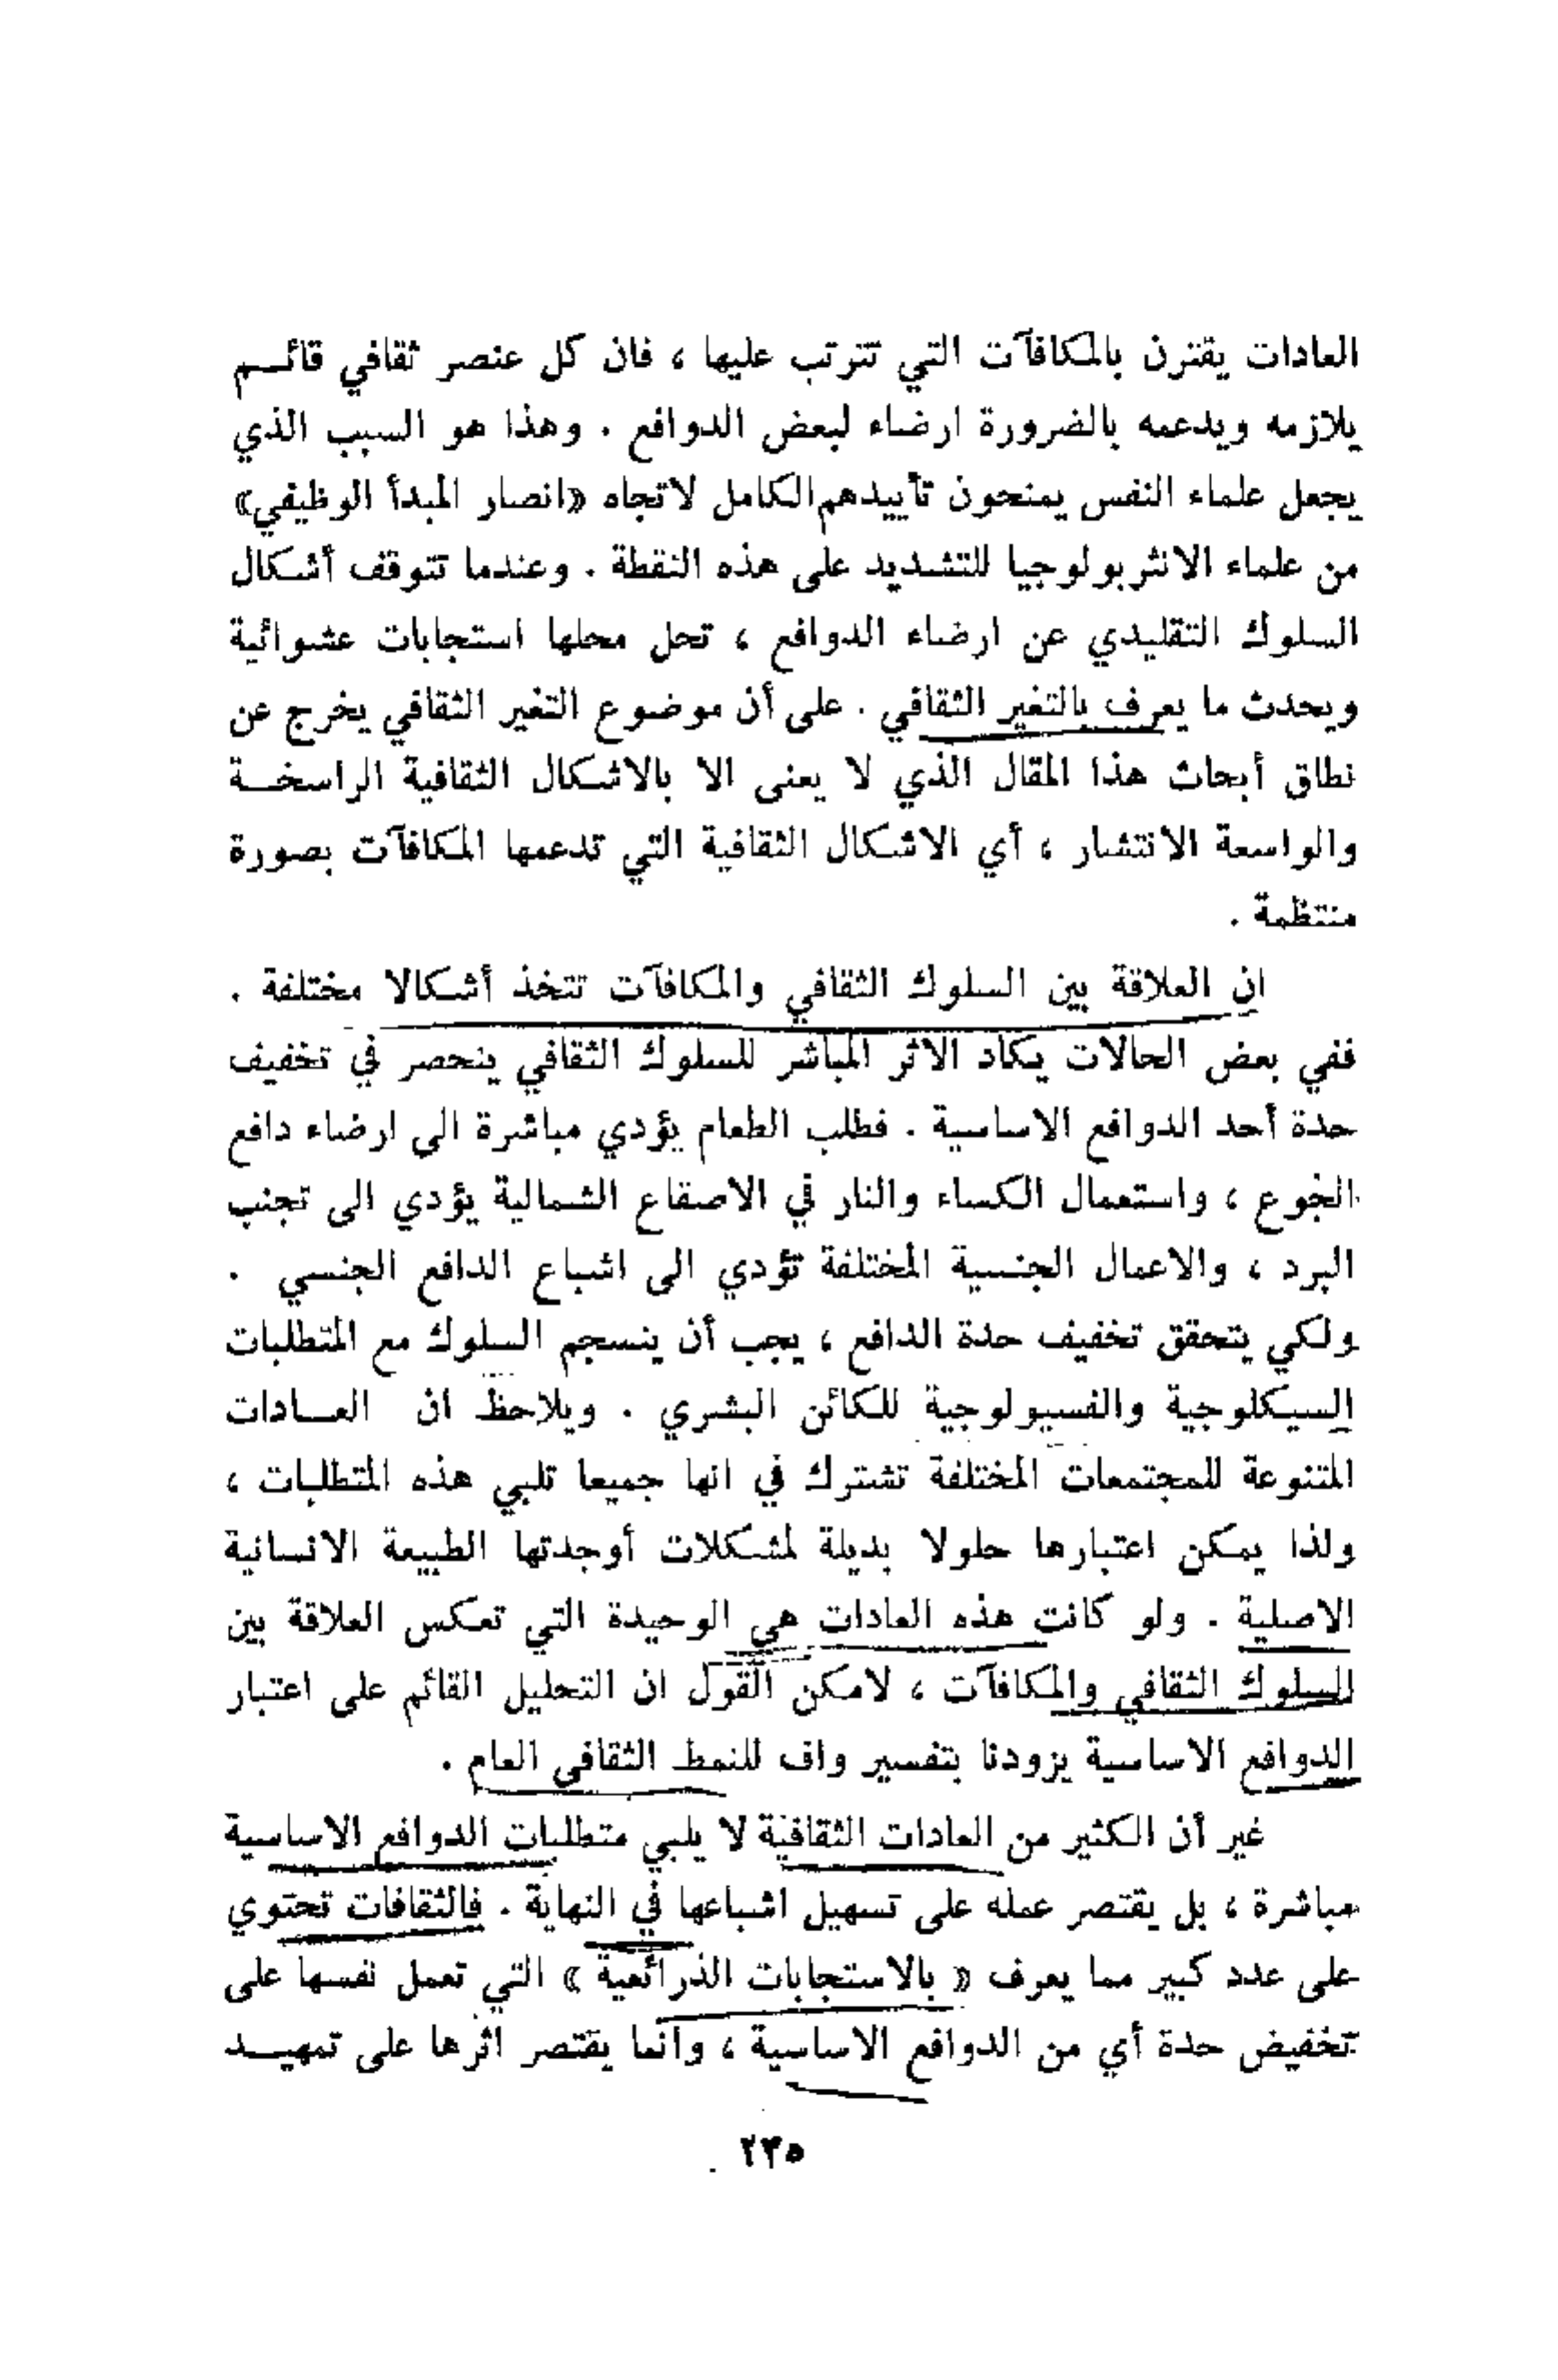 العادات يقترن بالمكافآت التي تترتب عليها ، فان كل عنصر ثقافي قائـــم
يلازمه ويدعمه بالضرورة ارضاء لبعض الدوافع . وهذا هو السبب الذي
يجعل علماء النفس يمنحون تأييدهم الكامل لاتجاه «انصار المبدأ الوظيفي»
من علماء الانثربولوجيا للتشديد على هذه النقطة . وعندما تتوقف أشكال
السلوك التقليدي عن ارضاء الدوافع ، تحل محلها استجابات عشوائية
ويحدث ما يعرف بالتغير الثقافي . على أن موضوع التغير الثقافي يخرج عن
نطاق أبحاث هذا المقال الذي لا يعنى الا بالاشكال الثقافية الراسخـــة
والواسعة الانتشار ، أي الاشكال الثقافية التي تدعمها المكافآت بصورة
منتظمة .
ان العلاقة بين السلوك الثقافي والمكافآت تتخذ أشكالا مختلفة .
ففي بعض الحالات يكاد الاثر المباشر للسلوك الثقافي ينحصر في تخفيف
حدة أحد الدوافع الاساسية . فطلب الطعام يؤدي مباشرة الى ارضاء دافع
الجوع ، واستعمال الكساء والنار في الاصقاع الشمالية يؤدي الى تجنب
البرد ، والاعمال الجنسية المختلفة تؤدي الى اشباع الدافع الجنسي .
ولكي يتحقق تخفيف حدة الدافع ، يجب أن ينسجم السلوك مع المتطلبات
السيكلوجية والفسيولوجية للكائن البشري . ويلاحظ ان العـــادات
المتنوعة للمجتمعات المختلفة تشترك في انها جميعا تلبي هذه المتطلبات ،
ولذا يمكن اعتبارها حلولا بديلة لمشكلات أوجدتها الطبيعة الانسانية
الاصلية . ولو كانت هذه العادات هي الوحيدة التي تعكس العلاقة بين
السلوك الثقافي والمكافآت ، لامكن القول ان التحليل القائم على اعتبار
الدوافع الاساسية يزودنا بتفسير واف للنمط الثقافي العام .
غير أن الكثير من العادات الثقافية لا يلبي متطلبات الدوافع الاساسية
مباشرة ، بل يقتصر عمله على تسهيل اشباعها في النهاية . فالثقافات تحتوي
على عدد كبير مما يعرف « بالاستجابات الذرائعية » التي تعمل نفسها على
تخفيض حدة أي من الدوافع الاساسية ، وانما يقتصر اثرها على تمهيـــد
٢٣٥